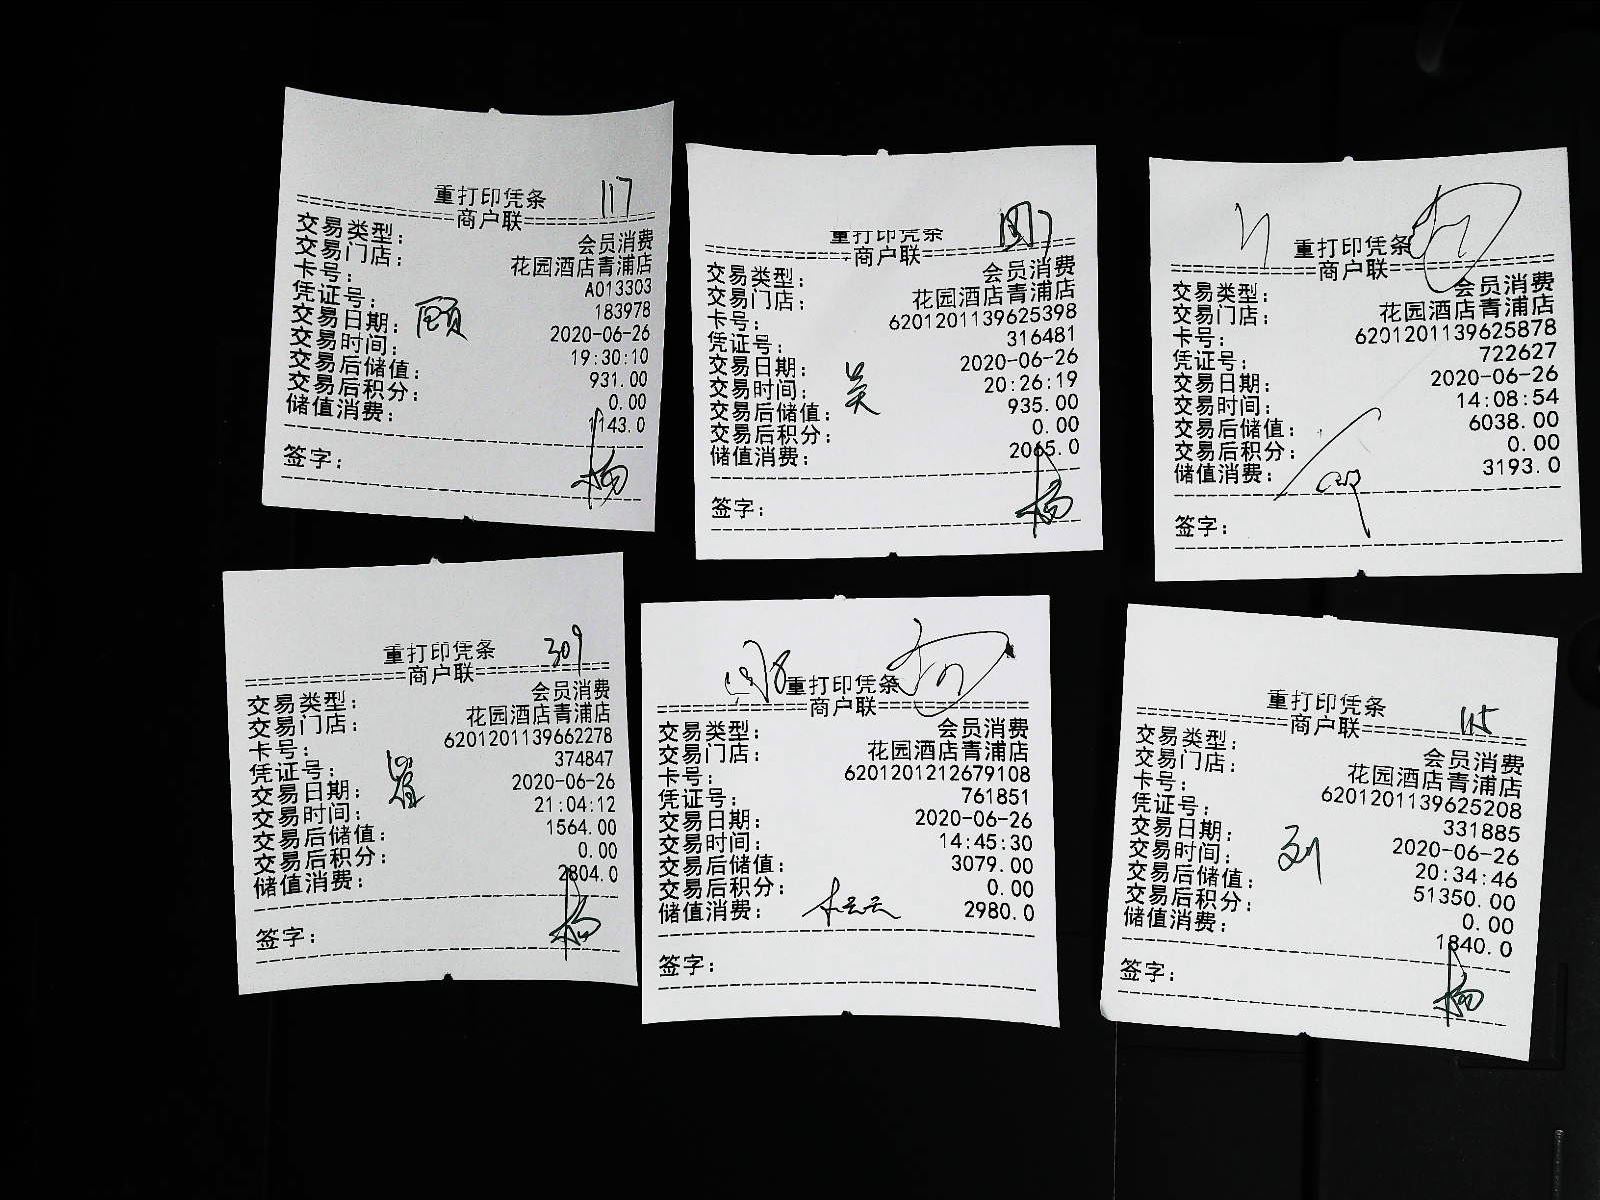 重打印凭条 117
商户联
交易类型: 会员消费
交易门店: 花园酒店青浦店
卡号: A013303
凭证号: 183978
交易日期: 2020-06-26
交易时间: 19:30:10
交易后储值: 931.00
交易后积分: 0.00
储值消费: 1143.0
顾
签字: 杨
重打印凭条
商户联
交易类型: 会员消费
交易门店: 花园酒店青浦店
卡号: 6201201139625398
凭证号: 316481
交易日期: 2020-06-26
交易时间: 20:26:19
交易后储值: 935.00
交易后积分: 0.00
储值消费: 2065.0
吴
签字: 杨
重打印凭条
商户联
交易类型: 会员消费
交易门店: 花园酒店青浦店
卡号: 6201201139625878
凭证号: 722627
交易日期: 2020-06-26
交易时间: 14:08:54
交易后储值: 6038.00
交易后积分: 0.00
储值消费: 3193.0
签字:
重打印凭条 309
商户联
交易类型: 会员消费
交易门店: 花园酒店青浦店
卡号: 6201201139662278
凭证号: 374847
交易日期: 2020-06-26
交易时间: 21:04:12
交易后储值: 1564.00
交易后积分: 0.00
储值消费: 2804.0
签字: 杨
重打印凭条
商户联
交易类型: 会员消费
交易门店: 花园酒店青浦店
卡号: 6201201212679108
凭证号: 761851
交易日期: 2020-06-26
交易时间: 14:45:30
交易后储值: 3079.00
交易后积分: 0.00
储值消费: 2980.0
签字:
重打印凭条 115
商户联
交易类型: 会员消费
交易门店: 花园酒店青浦店
卡号: 6201201139625208
凭证号: 331885
交易日期: 2020-06-26
交易时间: 20:34:46
交易后储值: 51350.00
交易后积分: 0.00
储值消费: 1840.0
刘
签字: 杨